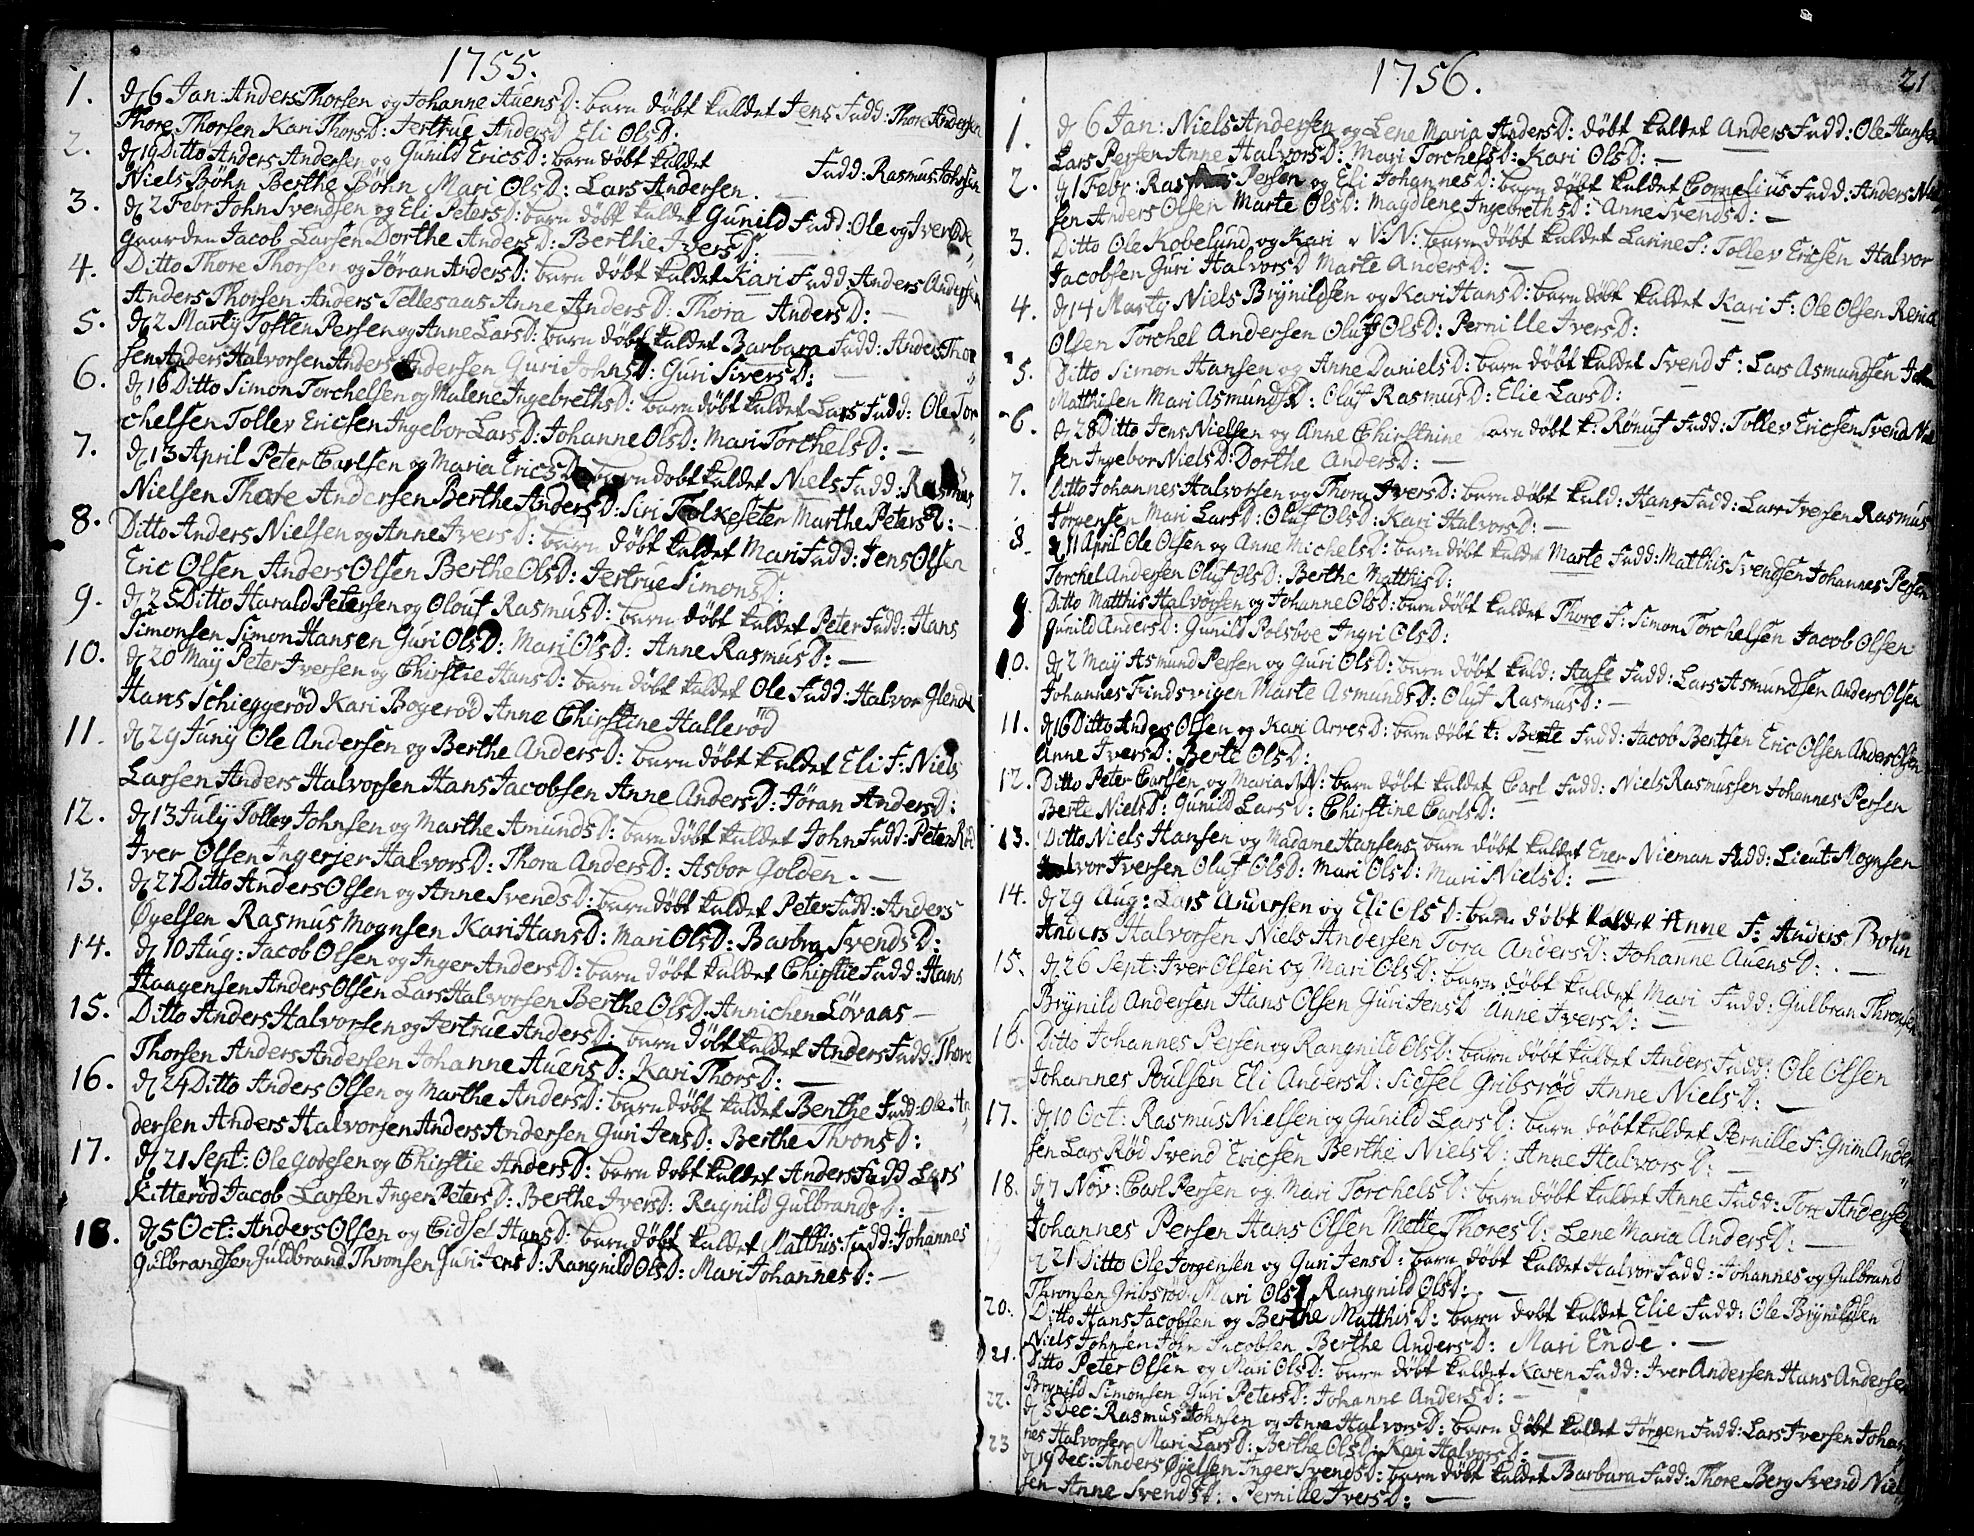 1755.
1. d 6 Jan: Anders Thorsen og Johanne AuensD: barn döbt kaldet Jens Fadd: Thore Andersen
Thore Thorsen Kari ThorsD: Jertrue AndersD Eli OlsD:
2. d 19 Ditto Anders Andersen og Gunild EricsD: barn döbt kaldet Fadd: Rasmus Johnsen
Niels Böhn Berthe Böhn Mari OlsD: Lars Andersen
3. d 2 Febr John Svendsen og Eli PetersD: barn döbt kaldet Gunild Fadd: Ole og Iver
gaarden Jacob Larsen Dorthe AndersD: Berthe IversD:
4. Ditto Thore Thorsen og Jöran AndersD: barn döbt kaldet Kari Fadd: Anders Andersen
Anders Thorsen Anders Tellesaas Anne AndersD: Thora AndersD: —
5. d 2 Martÿ Tosten Persen og Anne LarsD: barn döbt kaldet Barbara Fadd: Anders Thor
sen Anders Halvorsen Anders Andersen Guri JohnsD: Guri SiversD: —
6. d 16 Ditto Simon Torchelsen og Malene IngebrethsD: barn döbt kaldet Lars Fadd: Ole Tor
chelsen Tollev Ericsen Ingebor LarsD: Johanne OlsD: Mari TorchelsD: —
7. d 13 April Peter Carlsen og Maria EricsD barn dobt kaldet Niels Fadd: Rasmus
Nielsen Thore Andersen Berthe AndersD: Siri Folkeseter Marthe PetersD: —
8. Ditto Anders Nielsen og Anne IversD: barn döbt kaldet Mari Fadd: Jens Olsen
Eric Olsen Anders Olsen Berthe OlsD: Jertrue SimonsD:
9. d 25 Ditto Harald Petersen og Olouf RasmusD: barn döbt kaldet Peter Fadd: Hans
Simonsen Simon Hansen Guri OlsD: Mari OlsD: Anne RasmusD: —
10. d 20 Maÿ Peter Iversen og Chirstie HansD: barn döbt kaldet Ole Fadd: Halvor Glende
Hans Schieggeröd Kari Bogeröd Anne Chirstine Halleröd
11. d 29 Junÿ Ole Andersen og Berthe AndersD: barn döbt kaldet Eli F: Niels
Larsen Anders Halvorsen Hans Jacobsen Anne AndersD: Jöran AndersD:
12. d 13 Julÿ Tollev Johnsen og Marthe AmundsD: barn döbt kaldet John Fadd: Peter Röd
Iver Olsen Ingerjer HalvorsD: Thora AndersD: Asbor Golden. —
13. d 27 Ditto Anders Olsen og Anne SvendsD: barn döbt kaldet Peter Fadd: Anders
Øyelsen Rasmus Mognsen Kari HansD: Mari OlsD: Barbra SvendsD:
14. d 10 Aug: Jacob Olsen og Inger AndersD: barn döbt kaldet Chirstie Fadd: Hans
Haagensen Anders Olsen Lars Halvorsen Berthe OlsD: Annichen Lövaas —
15. Ditto Anders Halvorsen og Jertrue AndersD: barn döbt kaldet Anders Fadd: Thore
Thorsen Anders Andersen Johanne AuensD: Kari ThorsD: —
16. d 24 Ditto Anders Olsen og Marthe AndersD: barn döbt kaldet Benthe Fadd: Ole An
dersen Anders Halvorsen Anders Andersen Guri JensD: Berthe ThronsD:
17. d 21 Sept: Ole Godesen og Chirstie AndersD: barn dobt kaldet Anders Fadd Lars
Kitteröd Jacob Larsen Inger PetersD: Berthe IversD: Ragnild GulbrandsD: —
18. d 5 Oct: Anders Olsen og Cidsel HansD: barn döbt kaldet Matthis: Fadd: Johannes
Gulbrandsen Guldbrand Thronsen Guri JensD: Rangnild OlsD: Mari JohannesD: —
1756.
21
1. d 6 Jan: Niels Andersen og Lene Maria AndersD: döbt kaldet Anders Fadd: Ole Hansen
Lars Persen Anne HalvorsD: Mari TorchelsD: Kari OlsD: —
2. d 1 Febr: Rasmus Persen og Eli JohannesD: barn döbt kaldet Cornelius Fadd: Anders Niel
sen Anders Olsen Marte OlsD: Magdlene IngebrethsD: Anne SvendsD: —
3. Ditto Ole Kobelund og Kari N:N: barn döbt kaldet Larine F: Tollev Ericsen Halvor
Jacobsen Guri HalvorsD Marte AndersD: —
4. d 14 Martÿ Niels Brÿnildsen og Kari HansD: barn döbt kaldet Kari F: Ole Olsen
Olsen Torchel Andersen Oluf OlsD: Pernille IversD:
5. Ditto Simon Hansen og Anne DanielsD: barn döbt kaldet Svend F: Lars Asmundsen
Matthisen Mari AsmundsD: Oluf RasmusD: Elie LarsD:
6. d 28 Ditto Jens Nielsen og Anne Chirstnine barn döbt k: Rönuf Fadd: Tollev Ericsen Svend Niel
sen Ingebor NielsD: Dorthe AndersD: —
7. Ditto Johannes Halvorsen og Thora IversD: barn döbt kald: Hans Fadd: Lars Iversen Rasmus
Jörgensen Mari LarsD: Oluf OlsD: Kari HalvorsD: —
8. d 11 April Ole Olsen og Anne MichelsD: barn döbt kaldet Marte Fadd: Matthis Svendsen Johannes Persen
Torchel Andersen Oluf OlsD: Berthe MatthisD:
9. Ditto Matthis Halvorsen og Johanne OlsD: barn döbt kaldet Thore F: Simon Torchelsen Jacob Olsen
Gunild AndersD: Gunild Polsboe Ingri OlsD:
10. d 2 Maÿ Asmund Persen og Guri OlsD: barn döbt kald: Aase Fadd: Lars Asmundsen Anders Olsen
Johannes Findsvigen Marte AsmundsD: Oluf RasmusD: —
11. d 16 Ditto Anders Olsen og Kari ArvesD: barn döbt k: Berte Fadd: Jacob Bentsen Eric Olsen Anders Olsen
Anne IversD: Berte OlsD:
12. Ditto Peter Carlsen og Maria NN: barn döbt kaldet Carl Fadd: Niels Rasmussen Johannes Persen
Berte NielsD: Gunild LarsD: Chirstine CarlsD:
13. Ditto Niels Hansen og Madame Hansens barn döbt kaldet Ener Nieman Fadd: Lieut: Mognsen
Halvor Iversen Oluf OlsD: Mari OlsD: Mari NielsD: —
14. d 29 Aug: Lars Andersen og Eli OlsD: barn döbt kaldet Anne F: Anders Böhn
Anders Halvorsen Niels Andersen Tora AndersD: Johanne AuensD: . —
15. d 26 Sept: Iver Olsen og Mari OlsD: barn döbt kaldet Mari Fadd: Gulbran Thronsen
Brÿnild Andersen Hans Olsen Guri JensD Anne IversD: —
16. Ditto Johannes Persen og Rangnild OlsD: barn döbt kaldet Anders Fadd: Ole Olsen
Johannes Poulsen Eli AndersD: Sidsel Gribsröd Anne NielsD: —
17. d 10 Oct: Rasmus Nielsen og Gunild LarsD: barn döbt kaldet Pernille F: Grim Ander
sen Lars Röd Svend Ericsen Berthe NielsD: Anne HalvorsD: —
18. d 7 Nov: Carl Persen og Mari TorchelsD: barn döbt kaldet Anne Fadd: Tore Andersen
Johannes Persen Hans Olsen Mette ThoresD: Lene Maria AndersD: —
d 21 Ditto Ole Jorgensen og Guri JensD: barn döbt kaldet Halvor Fadd: Johannes og Gulbrand
Thronsen Gribsröd Mari OlsD Rangnild OlsD: —
20. Ditto Hans Jacobsen og Berthe MatthisD: barn dobt kaldet Elie Fadd: Ole Brÿnildsen
Niels Johnsen John Jacobsen Berthe AndersD: Mari Ende. —
21. Ditto Peter Olsen og Mari OlsD: barn döbt kaldet Karen Fadd: Iver Andersen Hans Andersen
Brÿnild Simonsen Guri PetersD: Johanne AndersD: —
22. d 5 Dec: Rasmus Johnsen og Anne HalvorsD: barn döbt kaldet Jörgen Fadd: Lars Iversen Johan
nes Halvorsen Mari LarsD: Berthe OlsD: Kari HalvorsD: —
23 d 19 Dec: Anders Øyelsen Inger SvendsD: barn döbt kaldet Barbara Fadd: Thore Berg Svend Niel
sen Anne SvendsD: Pernille IversD: —